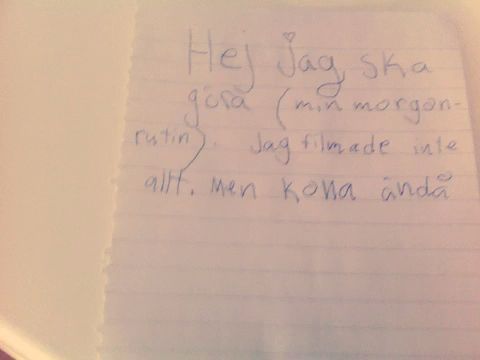 Hej jag ska
göra (min morgon-
rutin). Jag filmade inte
allt. Men kolla ändå